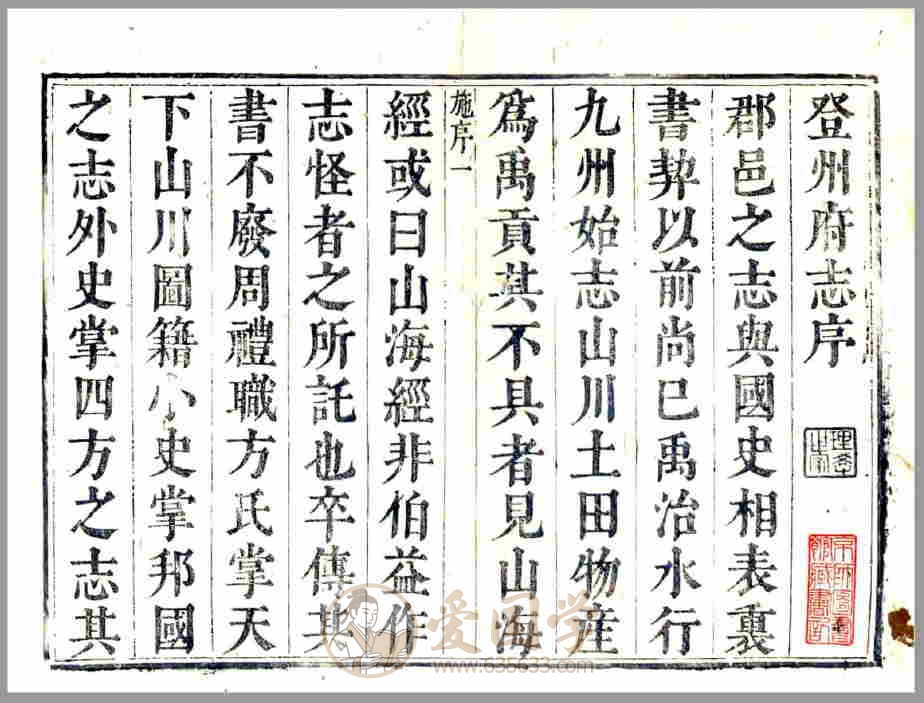 登州府志序
郡邑之志與國史相表裏
書契以前尚已禹治水行
九州始志山川土田物産
爲禹貢其不具者見山海
施序一
經或曰山海經非伯益作
志怪者之所託也卒傳其
書不廢周禮職方氏掌天
下山川圖籍小史掌邦國
之志外史掌四方之志其
爱国学
www.635633.com